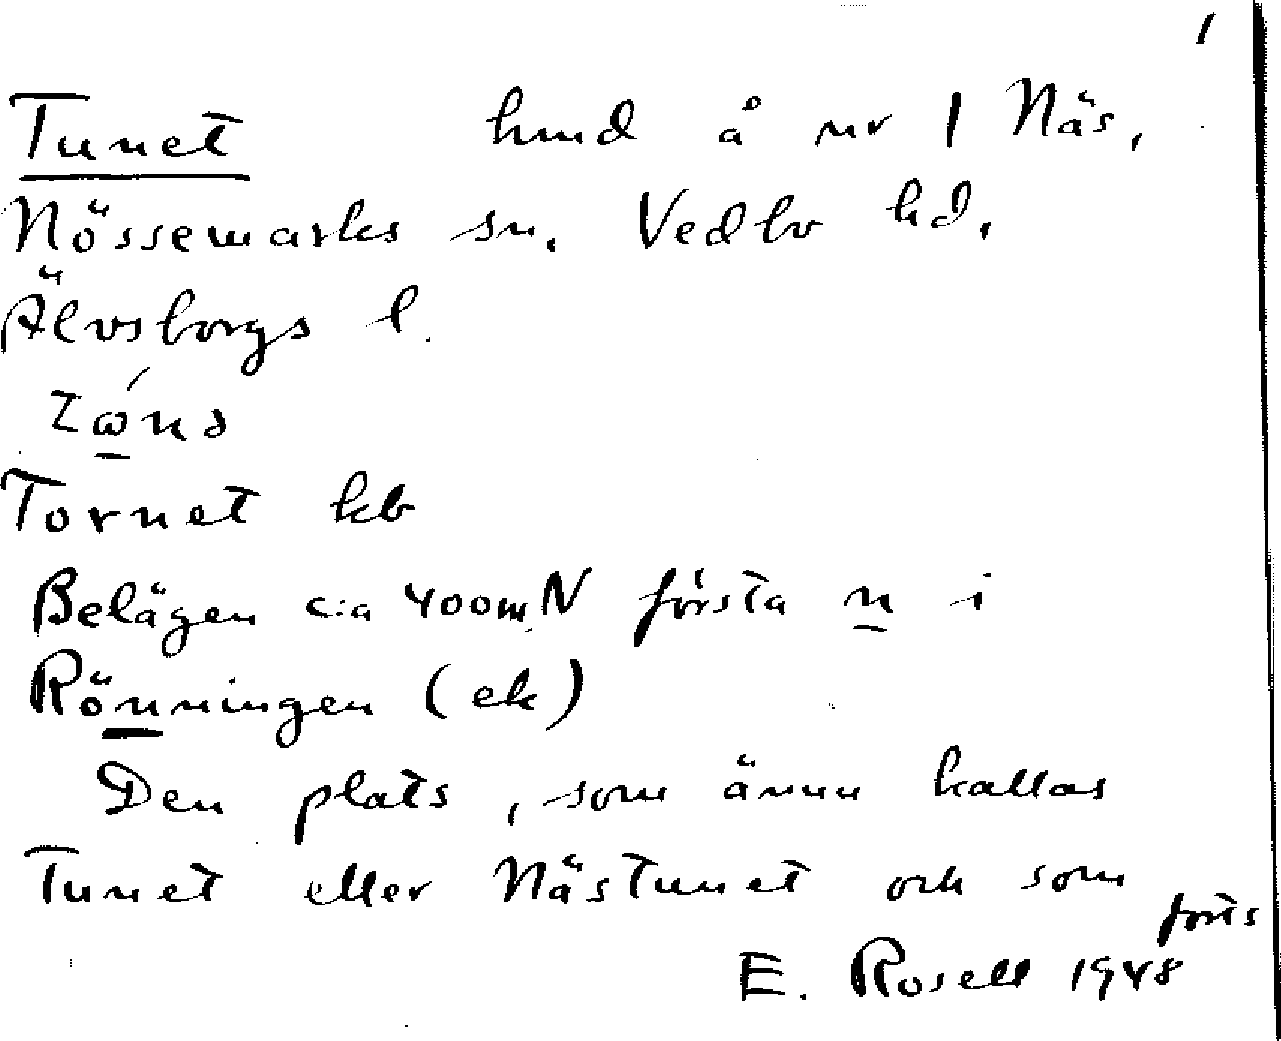 1
Tunet hmd å nr 1 Näs,
Nössemarks sn. Vedbo hd,
Älvsborgs l.
Tornet kb
Belägen c:a 400m N första n i
Rönningen (ek)
Den plats, som ännu kallas
Tunet eller Nästunet och som
forts
E. Rosell 1948